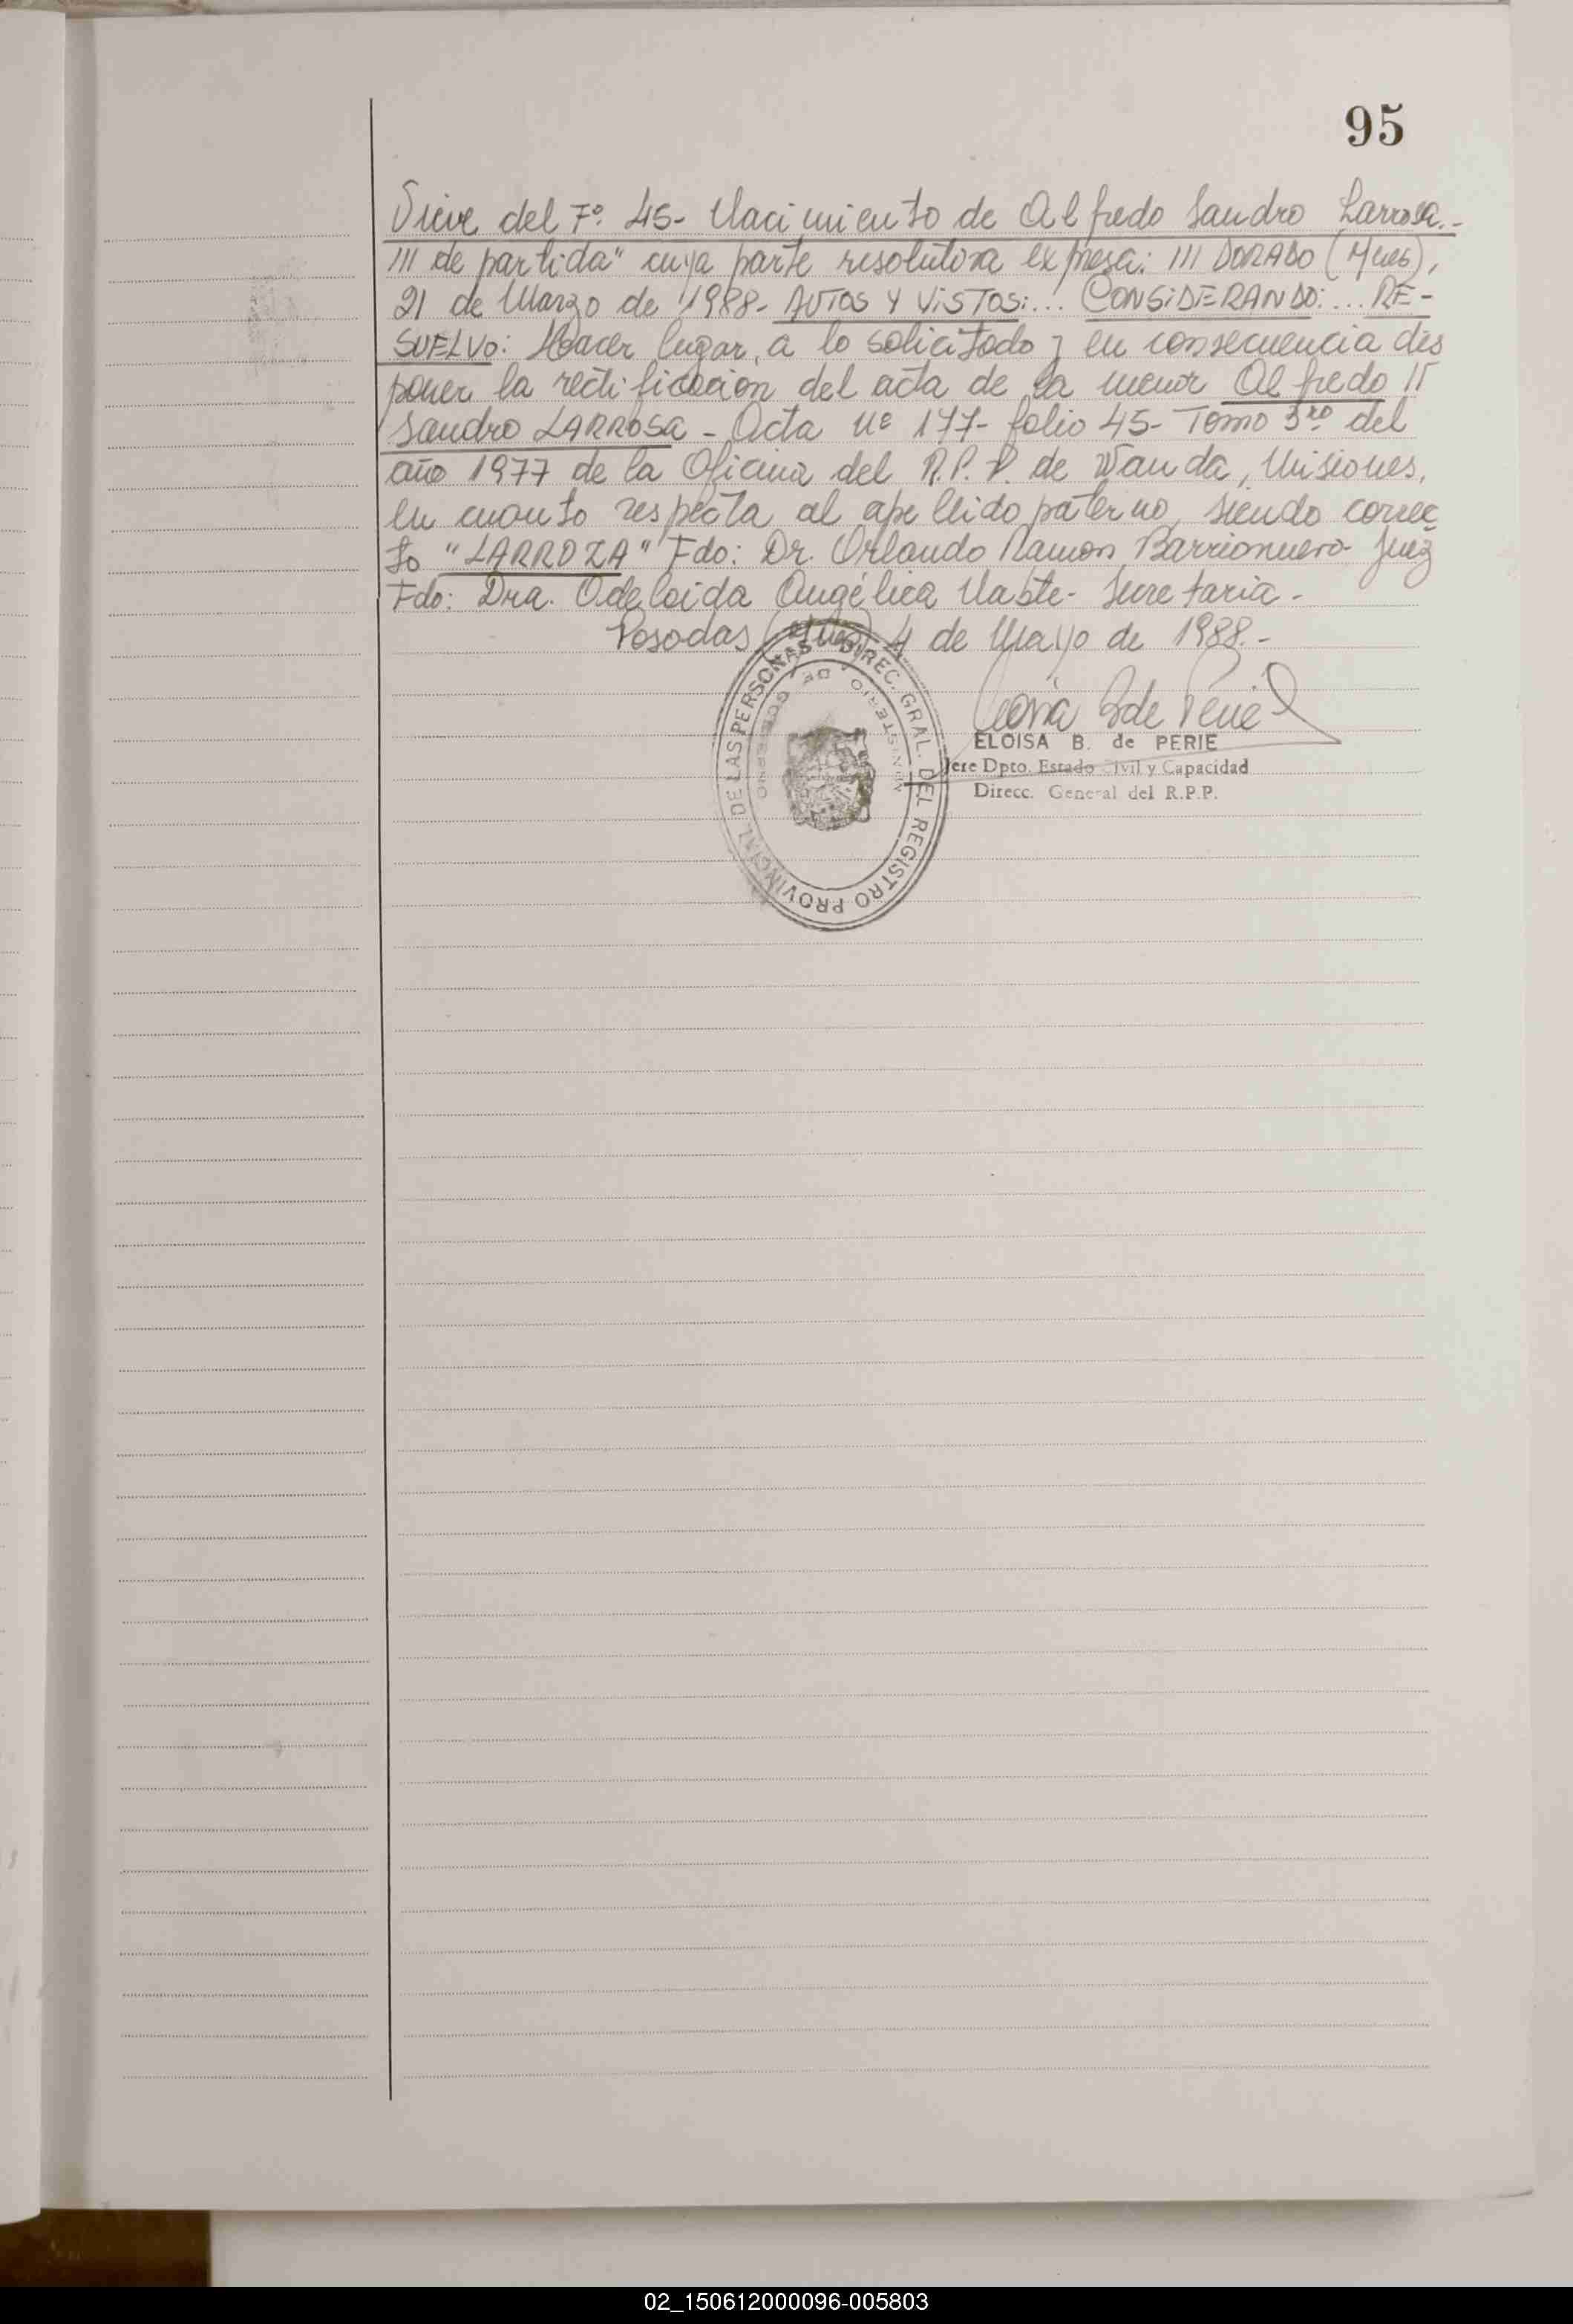 95
Viene del Fº. 45- Nacimiento de Alfredo Sandro Larrosa.-
/// de partida" cuya parte resolutiva expresa: /// DORADO (Mnes),
21 de Marzo de 1988- AUTOS Y VISTOS:... CONSIDERANDO:... RE-
SUELVO: Hacer lugar a lo solicitado y en consecuencia dis
poner la rectificación del acta de la menor Alfredo //
Sandro LARROSA - Acta nº 177- folio 45- Tomo 3ro del
año 1977 de la Oficina del R.P.P. de Wanda, Misiones,
en cuanto respecta al apellido paterno, siendo correc
to "LARROZA" Fdo: Dr. Orlando Ramon Barrionuevo- Juez
Fdo: Dra. Adelaida Angélica - Secretaria -
Posadas (Mnes) 4 de Mayo de 1988.-
ELOISA B. de PERIE
Jefe Dpto. Estado Civil y Capacidad
Direcc. General del R.P.P.
DIREC. GRAL. DEL REGISTRO PROVINCIAL DE LAS PERSONAS
MINISTERIO DE GOBIERNO
02_150612000096-005803